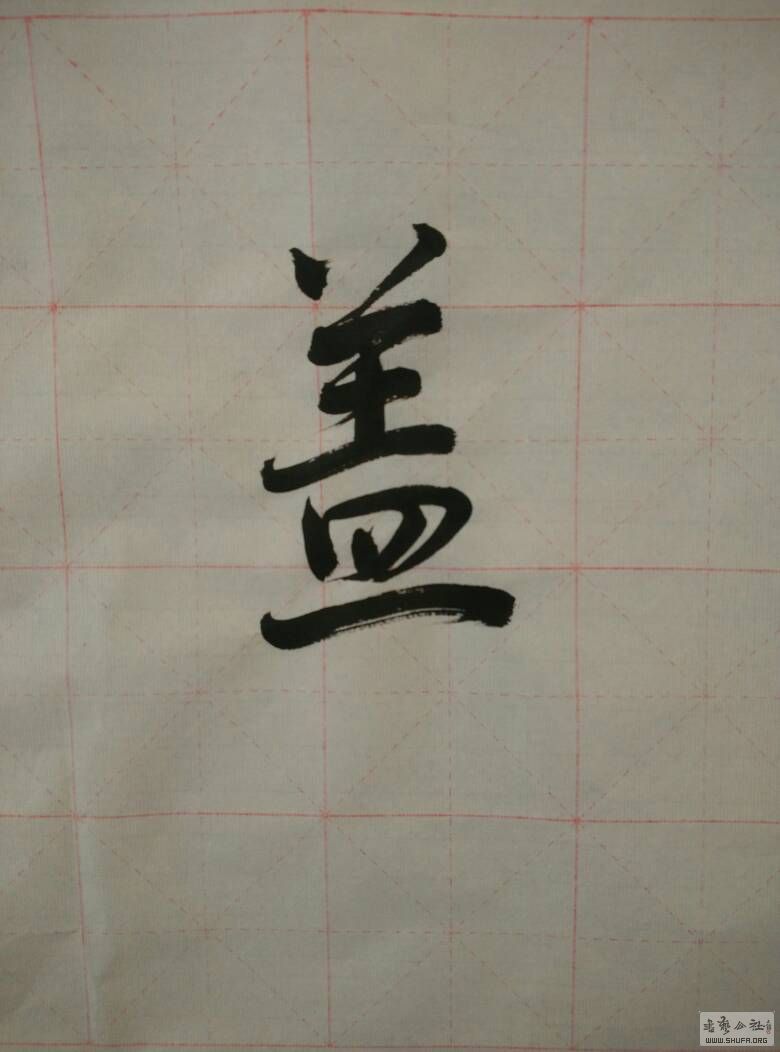 盖
书艺公社
WWW.SHUFA.ORG